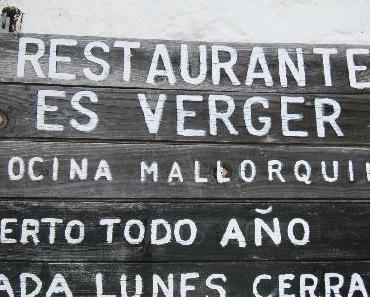 RESTAURANTE
ES VERGER
OCINA MALLORQUI
ERTO TODO AÑO
ADA LUNES CERRA